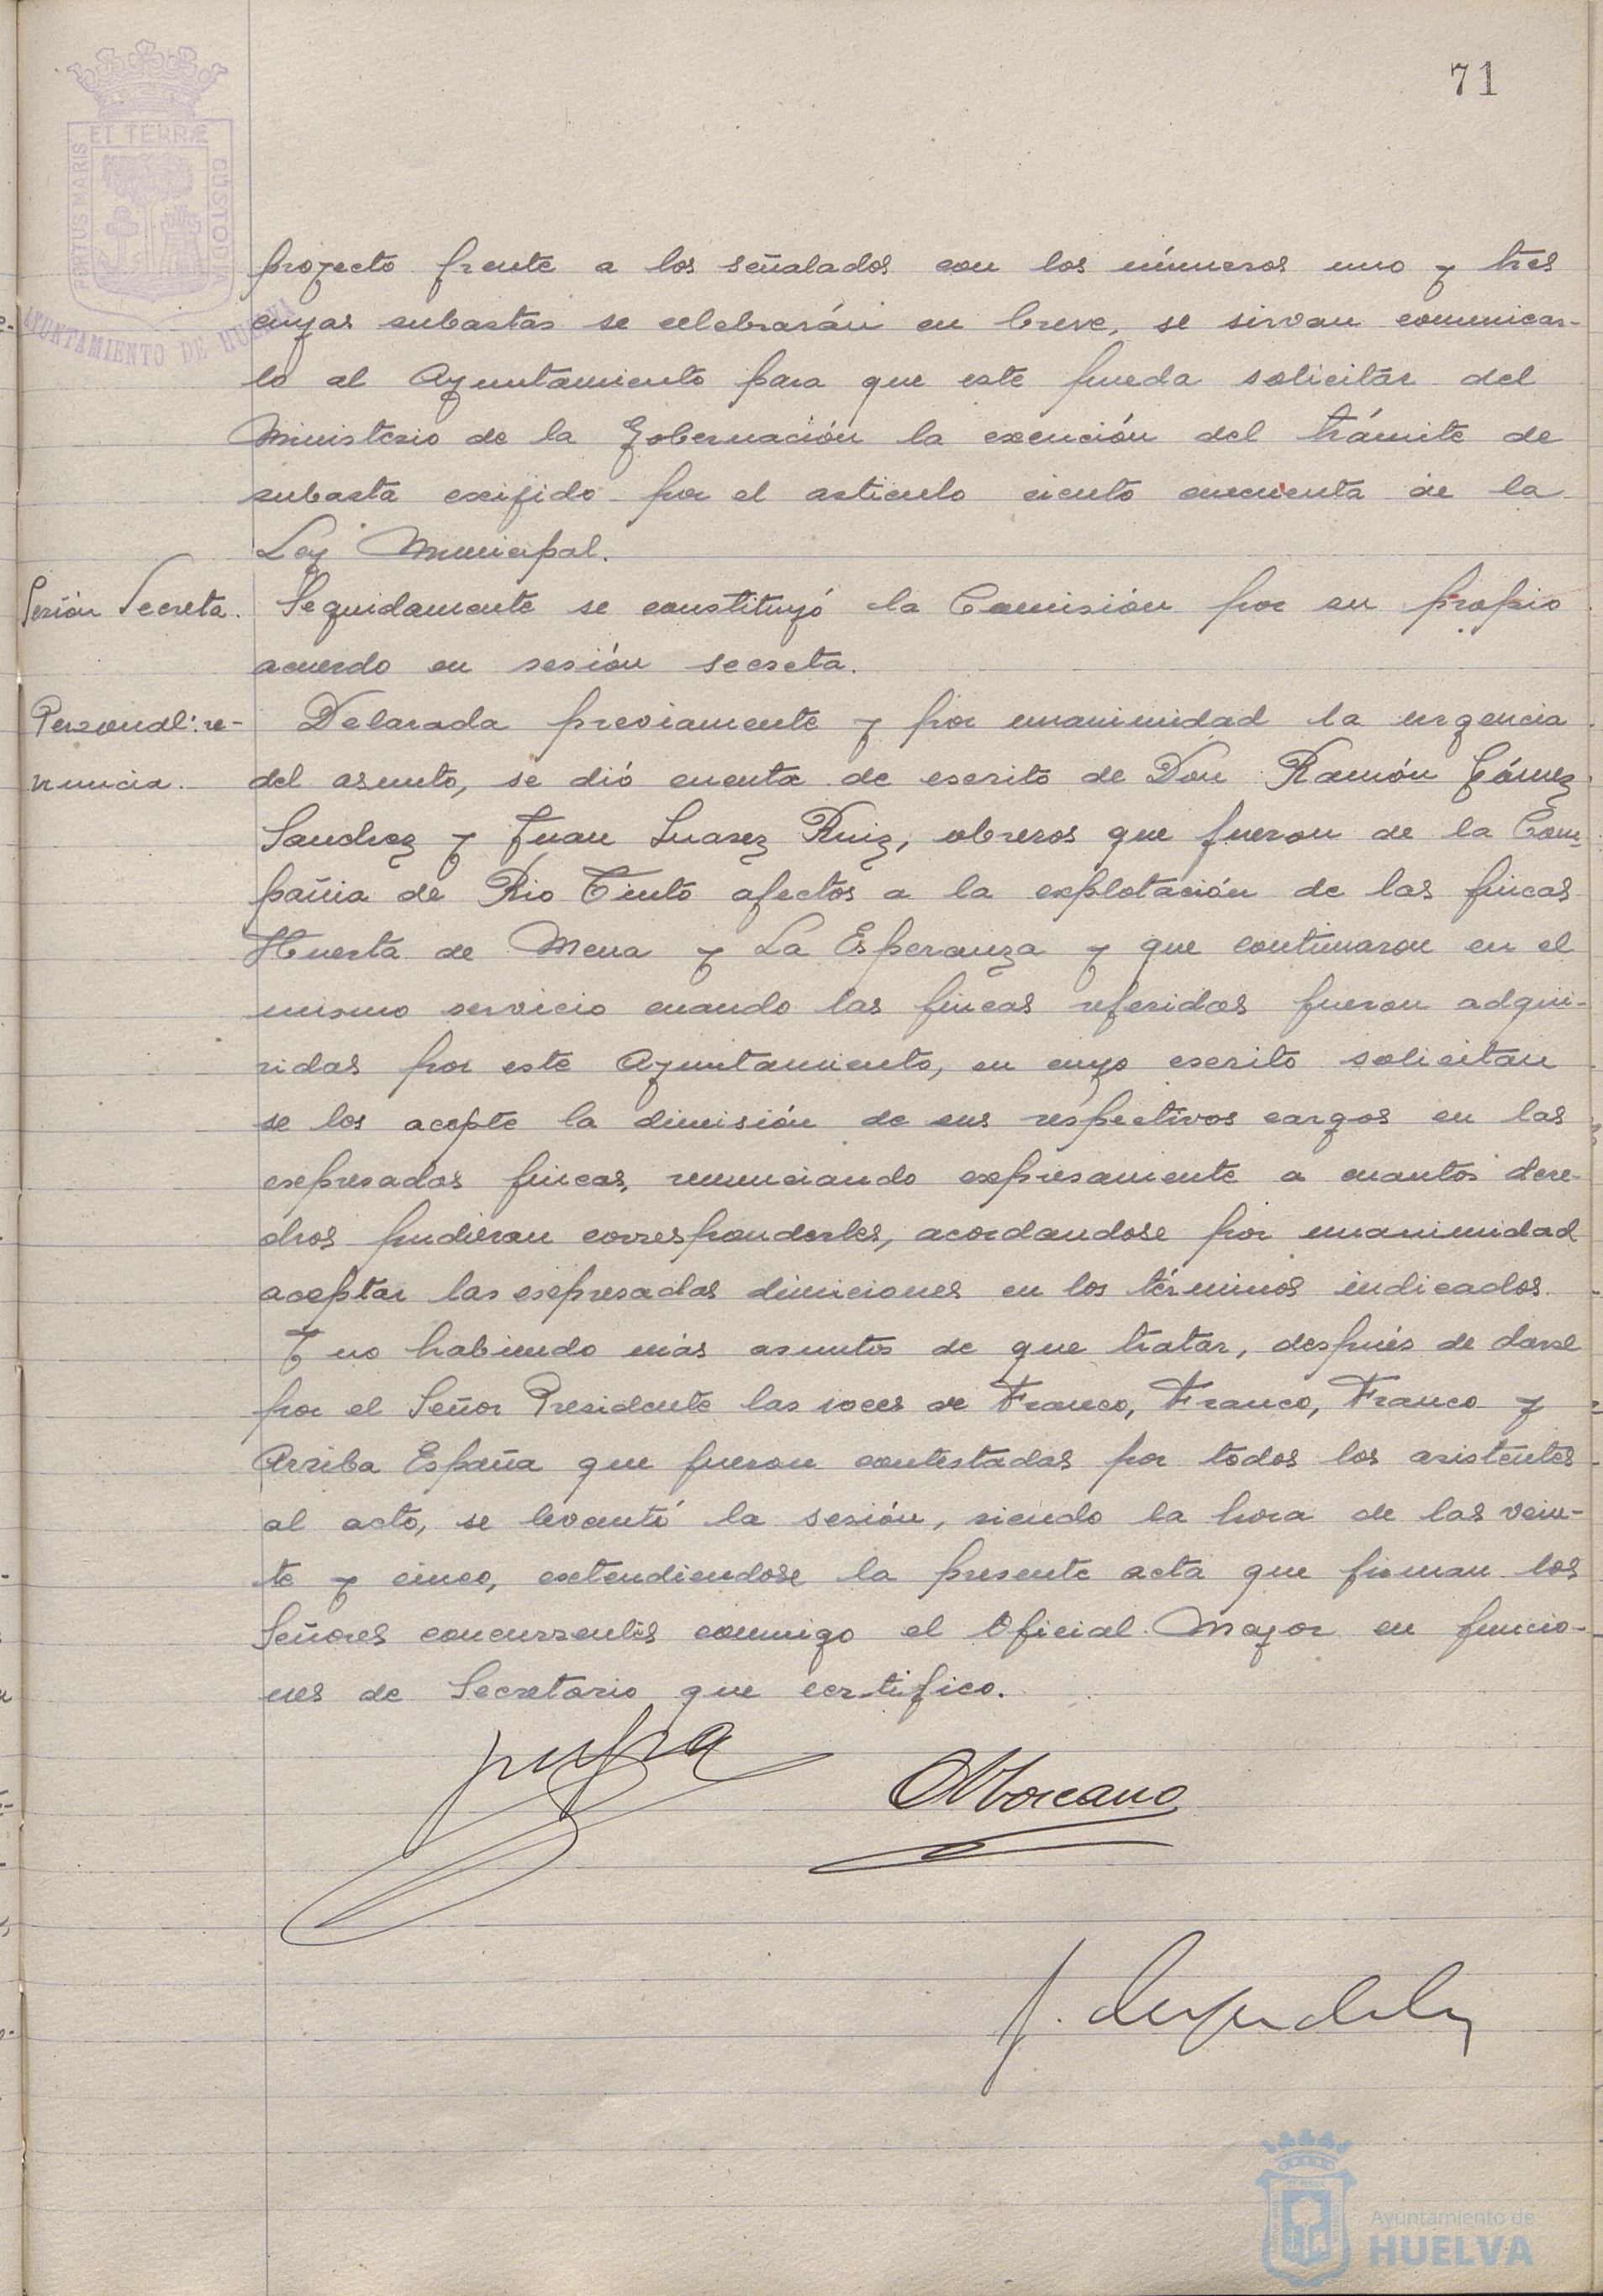 71
ET TERRÆ
PORTUS MARIS
CUSTODIA
AYUNTAMIENTO DE HUELVA
proyecto frente a los señalados con los números uno y tres
cuyas subastas se celebrarán en breve, se sirvan comunicar-
lo al Ayuntamiento para que este pueda solicitar del
Ministerio de la Gobernación la exención del trámite de
subasta exijido por el articulo ciento cincuenta de la
Ley Municipal.
Sesión Secreta. Seguidamente se constituyó la Comisión por su propio
acuerdo en sesión secreta.
Personal: re- Delarada previamente y por unanimidad la urgencia
nuncia. del asunto, se dió cuenta de escrito de Don Ramón Gómez
Sanchez y Juan Suarez Ruiz, obreros que fueron de la Com-
pañia de Rio Tinto afectos a la explotación de las fincas
Huerta de Mena y La Esperanza y que continuaron en el
mismo servicio cuando las fincas referidas fueron adqui-
ridas por este Ayuntamiento, en cuyo escrito solicitan
se los acepte la dimisión de sus respectivos cargos en las
expresadas fincas, renunciando expresamente a cuantos dere-
chos pudieran corresponderles, acordandose por unanimidad
aceptar las expresadas dimiciones en los términos indicados.
Y no habiendo más asuntos de que tratar, después de darse
por el Señor Presidente las voces de Franco, Franco, Franco y
Arriba España que fueron contestadas por todos los asistentes
al acto, se levantó la sesión, siendo la hora de las vein-
te y cinco, extendiendose la presente acta que firman los
Señores concurrentes conmigo el Oficial Mayor en funcio-
nes de Secretario que certifico.
Ayuntamiento de
HUELVA